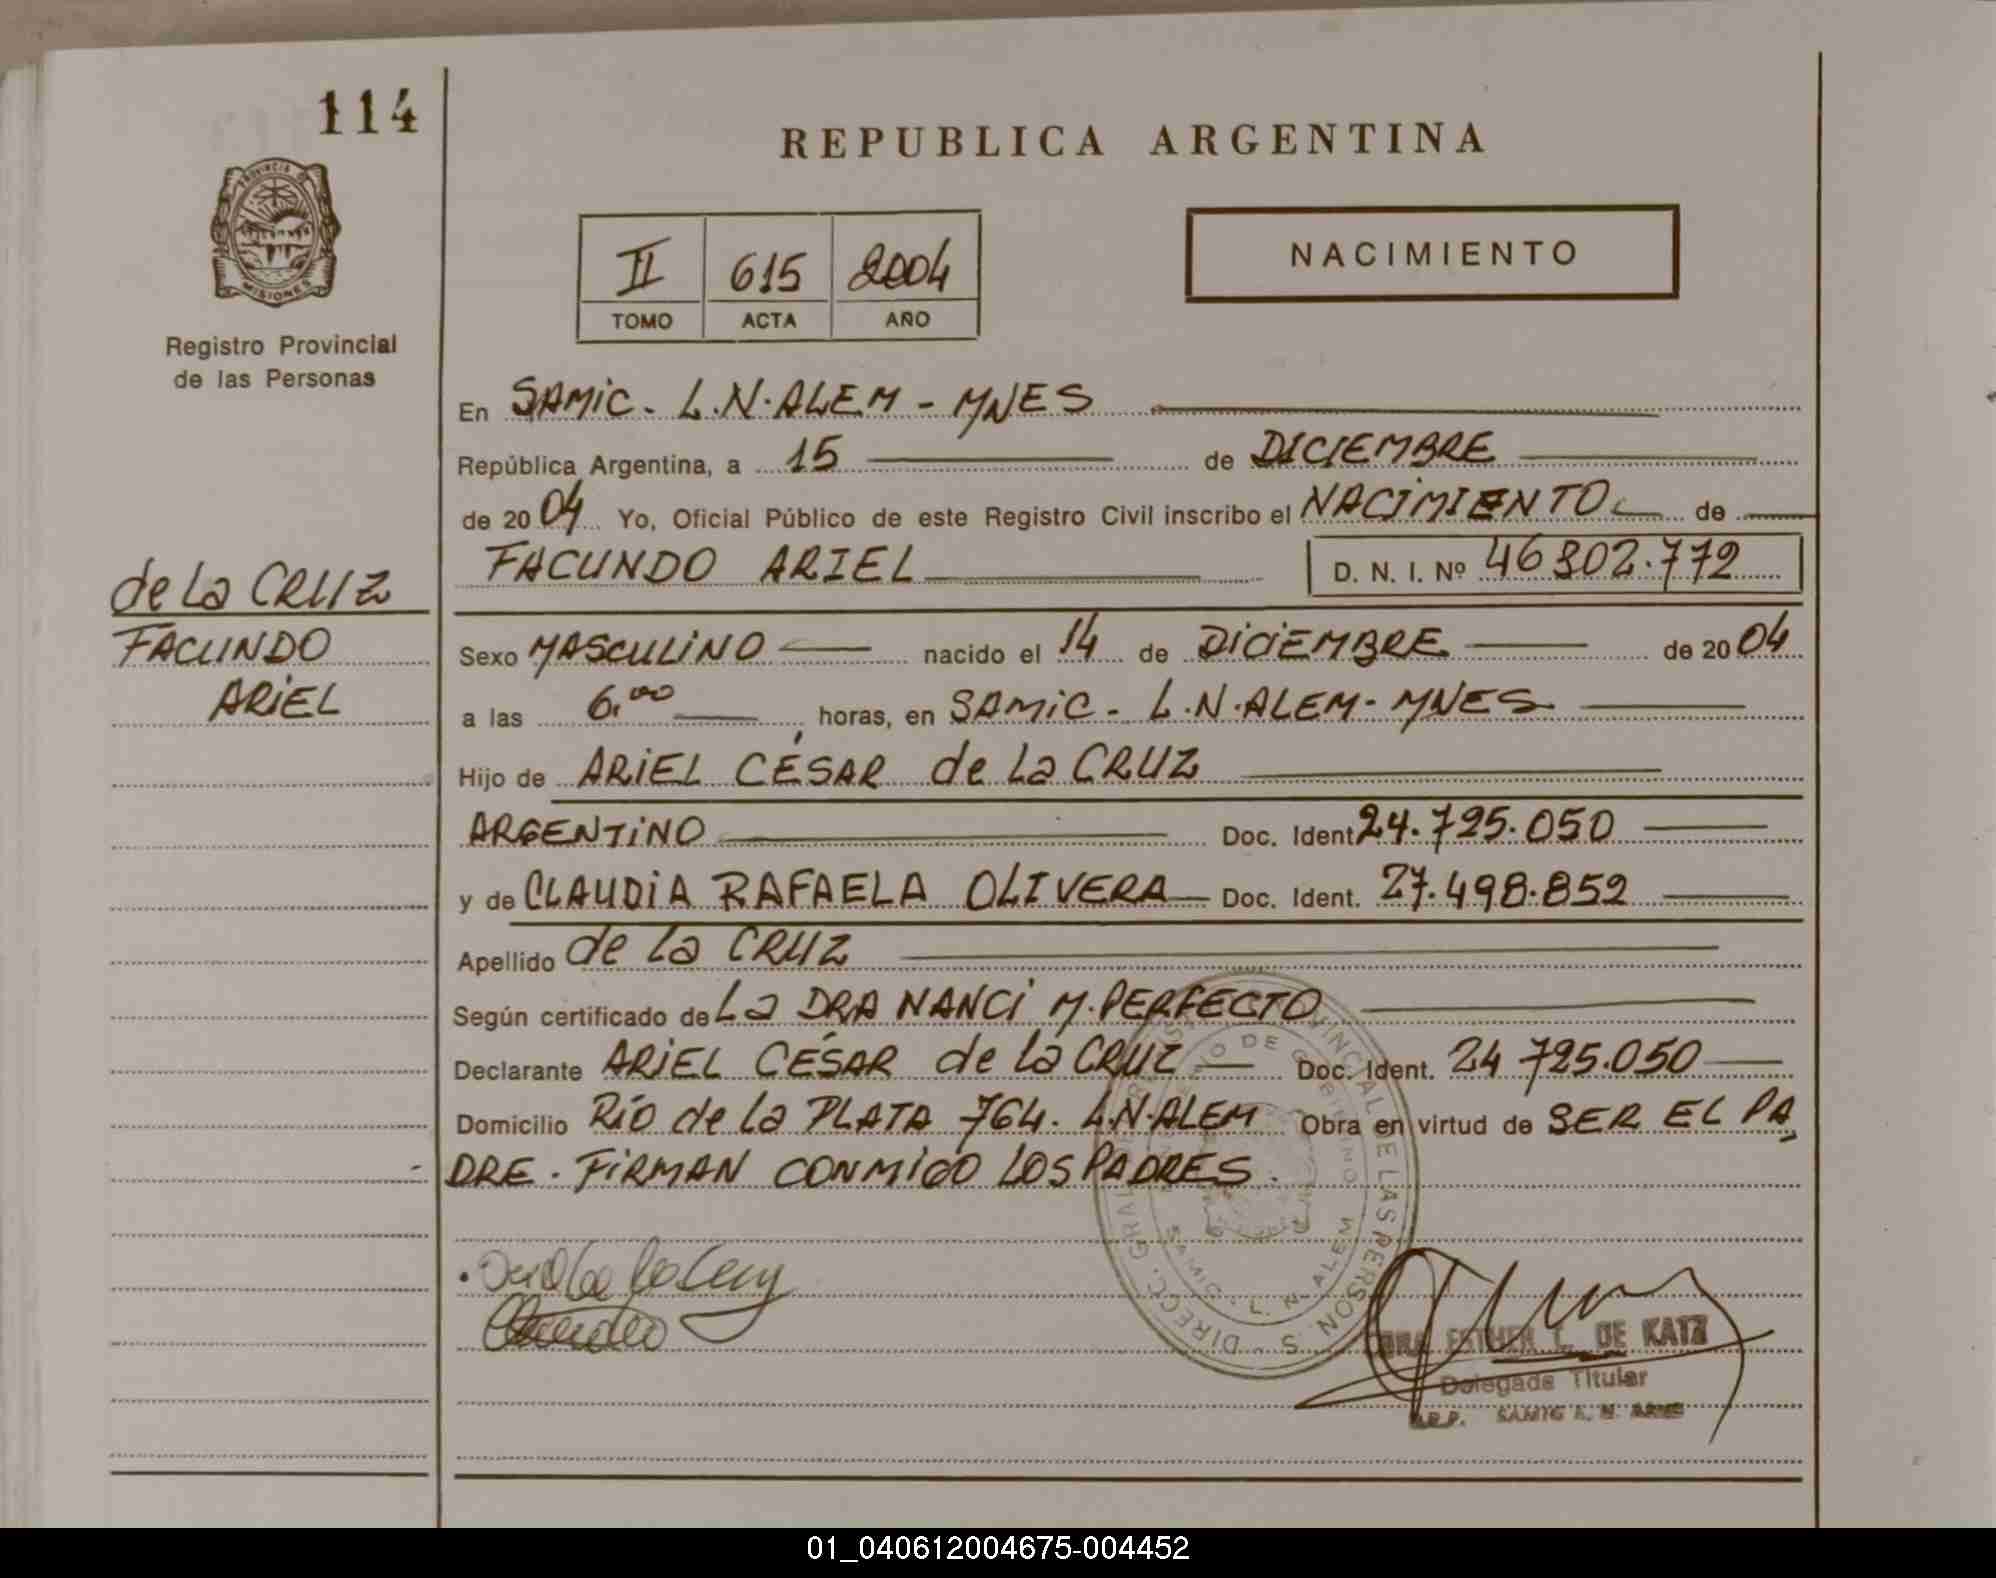 114
REPUBLICA ARGENTINA
PROVINCIA DE
MISIONES
Registro Provincial
de las Personas
II 615 2004
TOMO ACTA AÑO
NACIMIENTO
En SAMIC - L.N.ALEM - MNES
República Argentina, a 15 de DICIEMBRE
de 2004 Yo, Oficial Público de este Registro Civil inscribo el NACIMIENTO de
FACUNDO ARIEL D. N. I. Nº 46302.772
de La CRUZ
FACUNDO
ARIEL
Sexo MASCULINO nacido el 14 de DICIEMBRE de 2004
a las 6.00 horas, en SAMIC - L.N.ALEM - MNES
Hijo de ARIEL CÉSAR de La CRUZ
ARGENTINO Doc. Ident 24.725.050
y de CLAUDIA RAFAELA OLIVERA Doc. Ident. 27.498.852
Apellido de La CRUZ
Según certificado de La DRA NANCI M. PERFECTO
Declarante ARIEL CÉSAR de la CRUZ Doc. Ident. 24 725.050
Domicilio RÍO de la PLATA 764. L.N.ALEM Obra en virtud de SER EL PA
DRE. FIRMAN CONMIGO LOS PADRES.
DIRECC. GRAL. PROVINCIAL DE LAS PERSONAS
MINISTERIO DE GOBIERNO
SAMIC - L. N. ALEM
DRA ESTHER L. DE KATZ
Delegada Titular
R.P. SAMIC L. N. ALEM
01_040612004675-004452